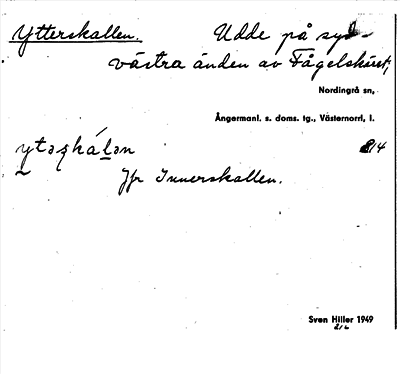 Ytterskallen. Udde på syd-
västra änden av Fågelskäret;
Nordingrå sn,
Ångermanl. s. doms. tg., Västernorrl. l.
ytəʂkálən 814
Jfr Innerskallen.
Sven Hiller 1949